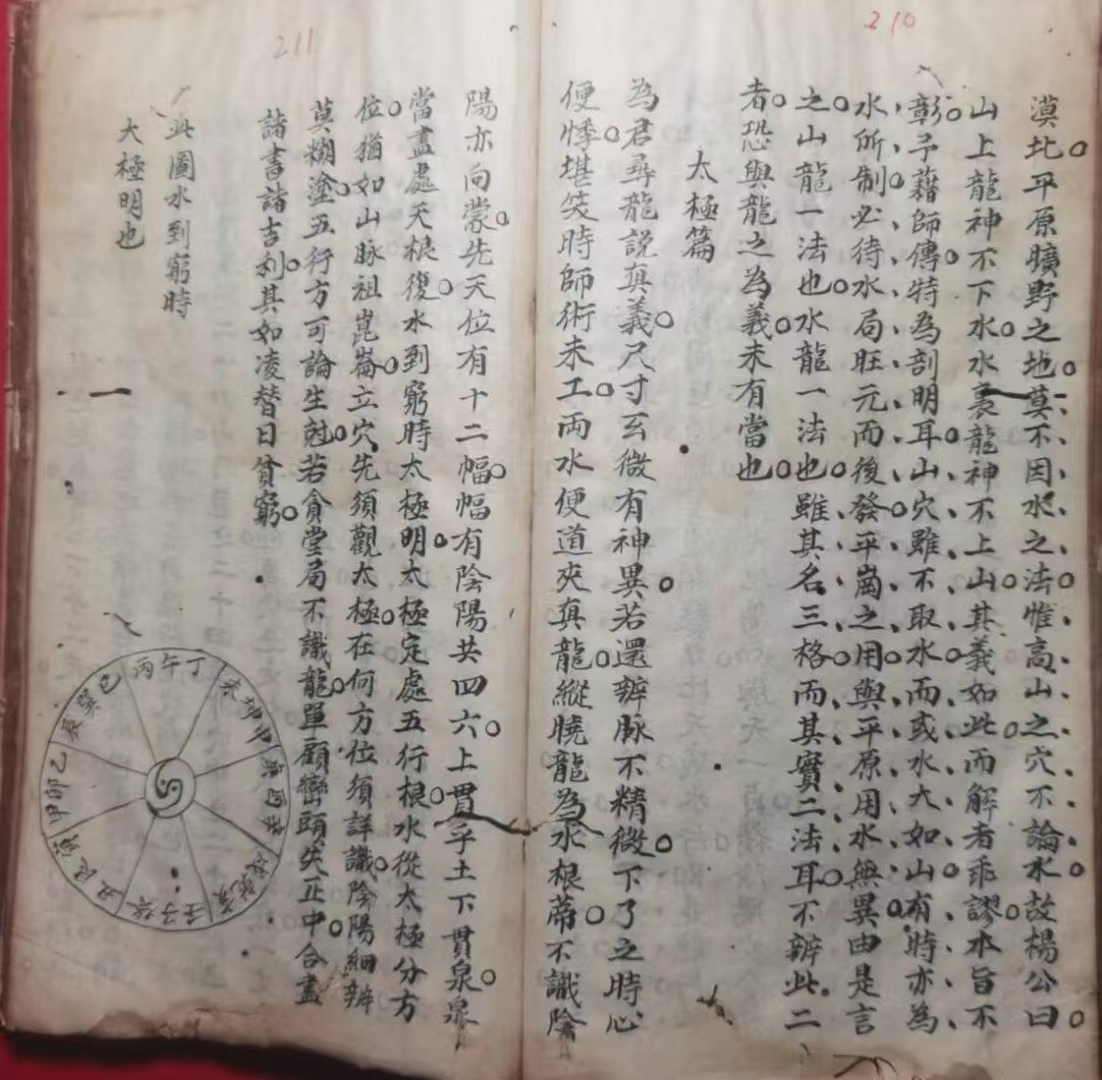 210
漠北平原曠野之地莫不因水之法惟高山之穴不論水故楊公曰
山上龍神不下水水裏龍神不上山其義如此而解者乖謬本旨不
彰予藉師傳特為剖明耳山穴雖不取水而或水大如山有時亦為
水所制必待水局旺元而後發平崗之用與平原用水無異由是言
之山龍一法也水龍一法也雖其名三格而其實二法耳不辨此二
者恐與龍之為義未有當也
太極篇
為君尋龍説真義尺寸玄微有神異若還辨脉不精微下了之時心
便悸堪笑時師術未工両水便道夾真龍縱曉龍為水根蒂不識陰
211
陽亦向蒙先天位有十二幅幅有陰陽共四六上貫孚土下貫泉泉
當盡處天根復水到窮時太極明太極定處五行根水從太極分方
位猶如山脉祖崑崙立穴先須觀太極在何方位須詳識陰陽細辨
莫糊塗五行方可論生尅若貪堂局不識龍單顧巒頭失正中合盡
諸書諸吉利其如凌替日貧窮
此圖水到窮時
大極明也
丙午丁
未坤申
庚酉辛
戌乾亥
壬子癸
丑艮寅
甲卯乙
辰巽巳